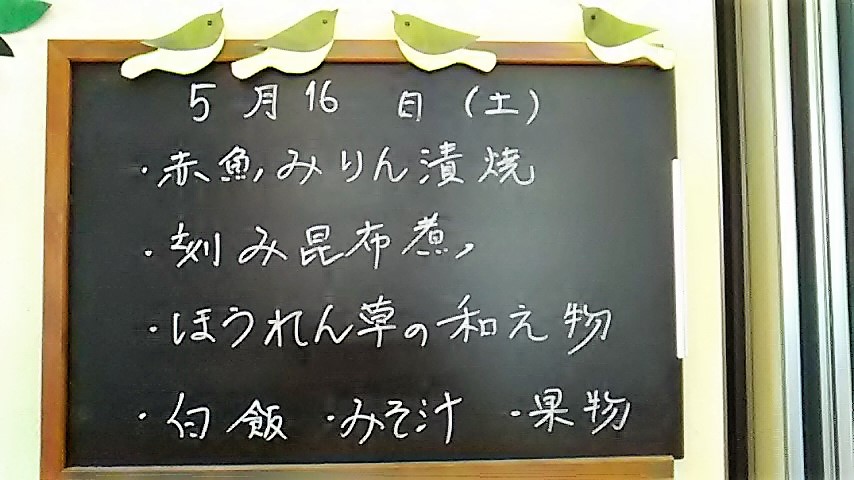 5月16日(土)
・赤魚みりん漬焼
・刻み昆布煮
・ほうれん草の和え物
・白飯 ・みそ汁 ・果物